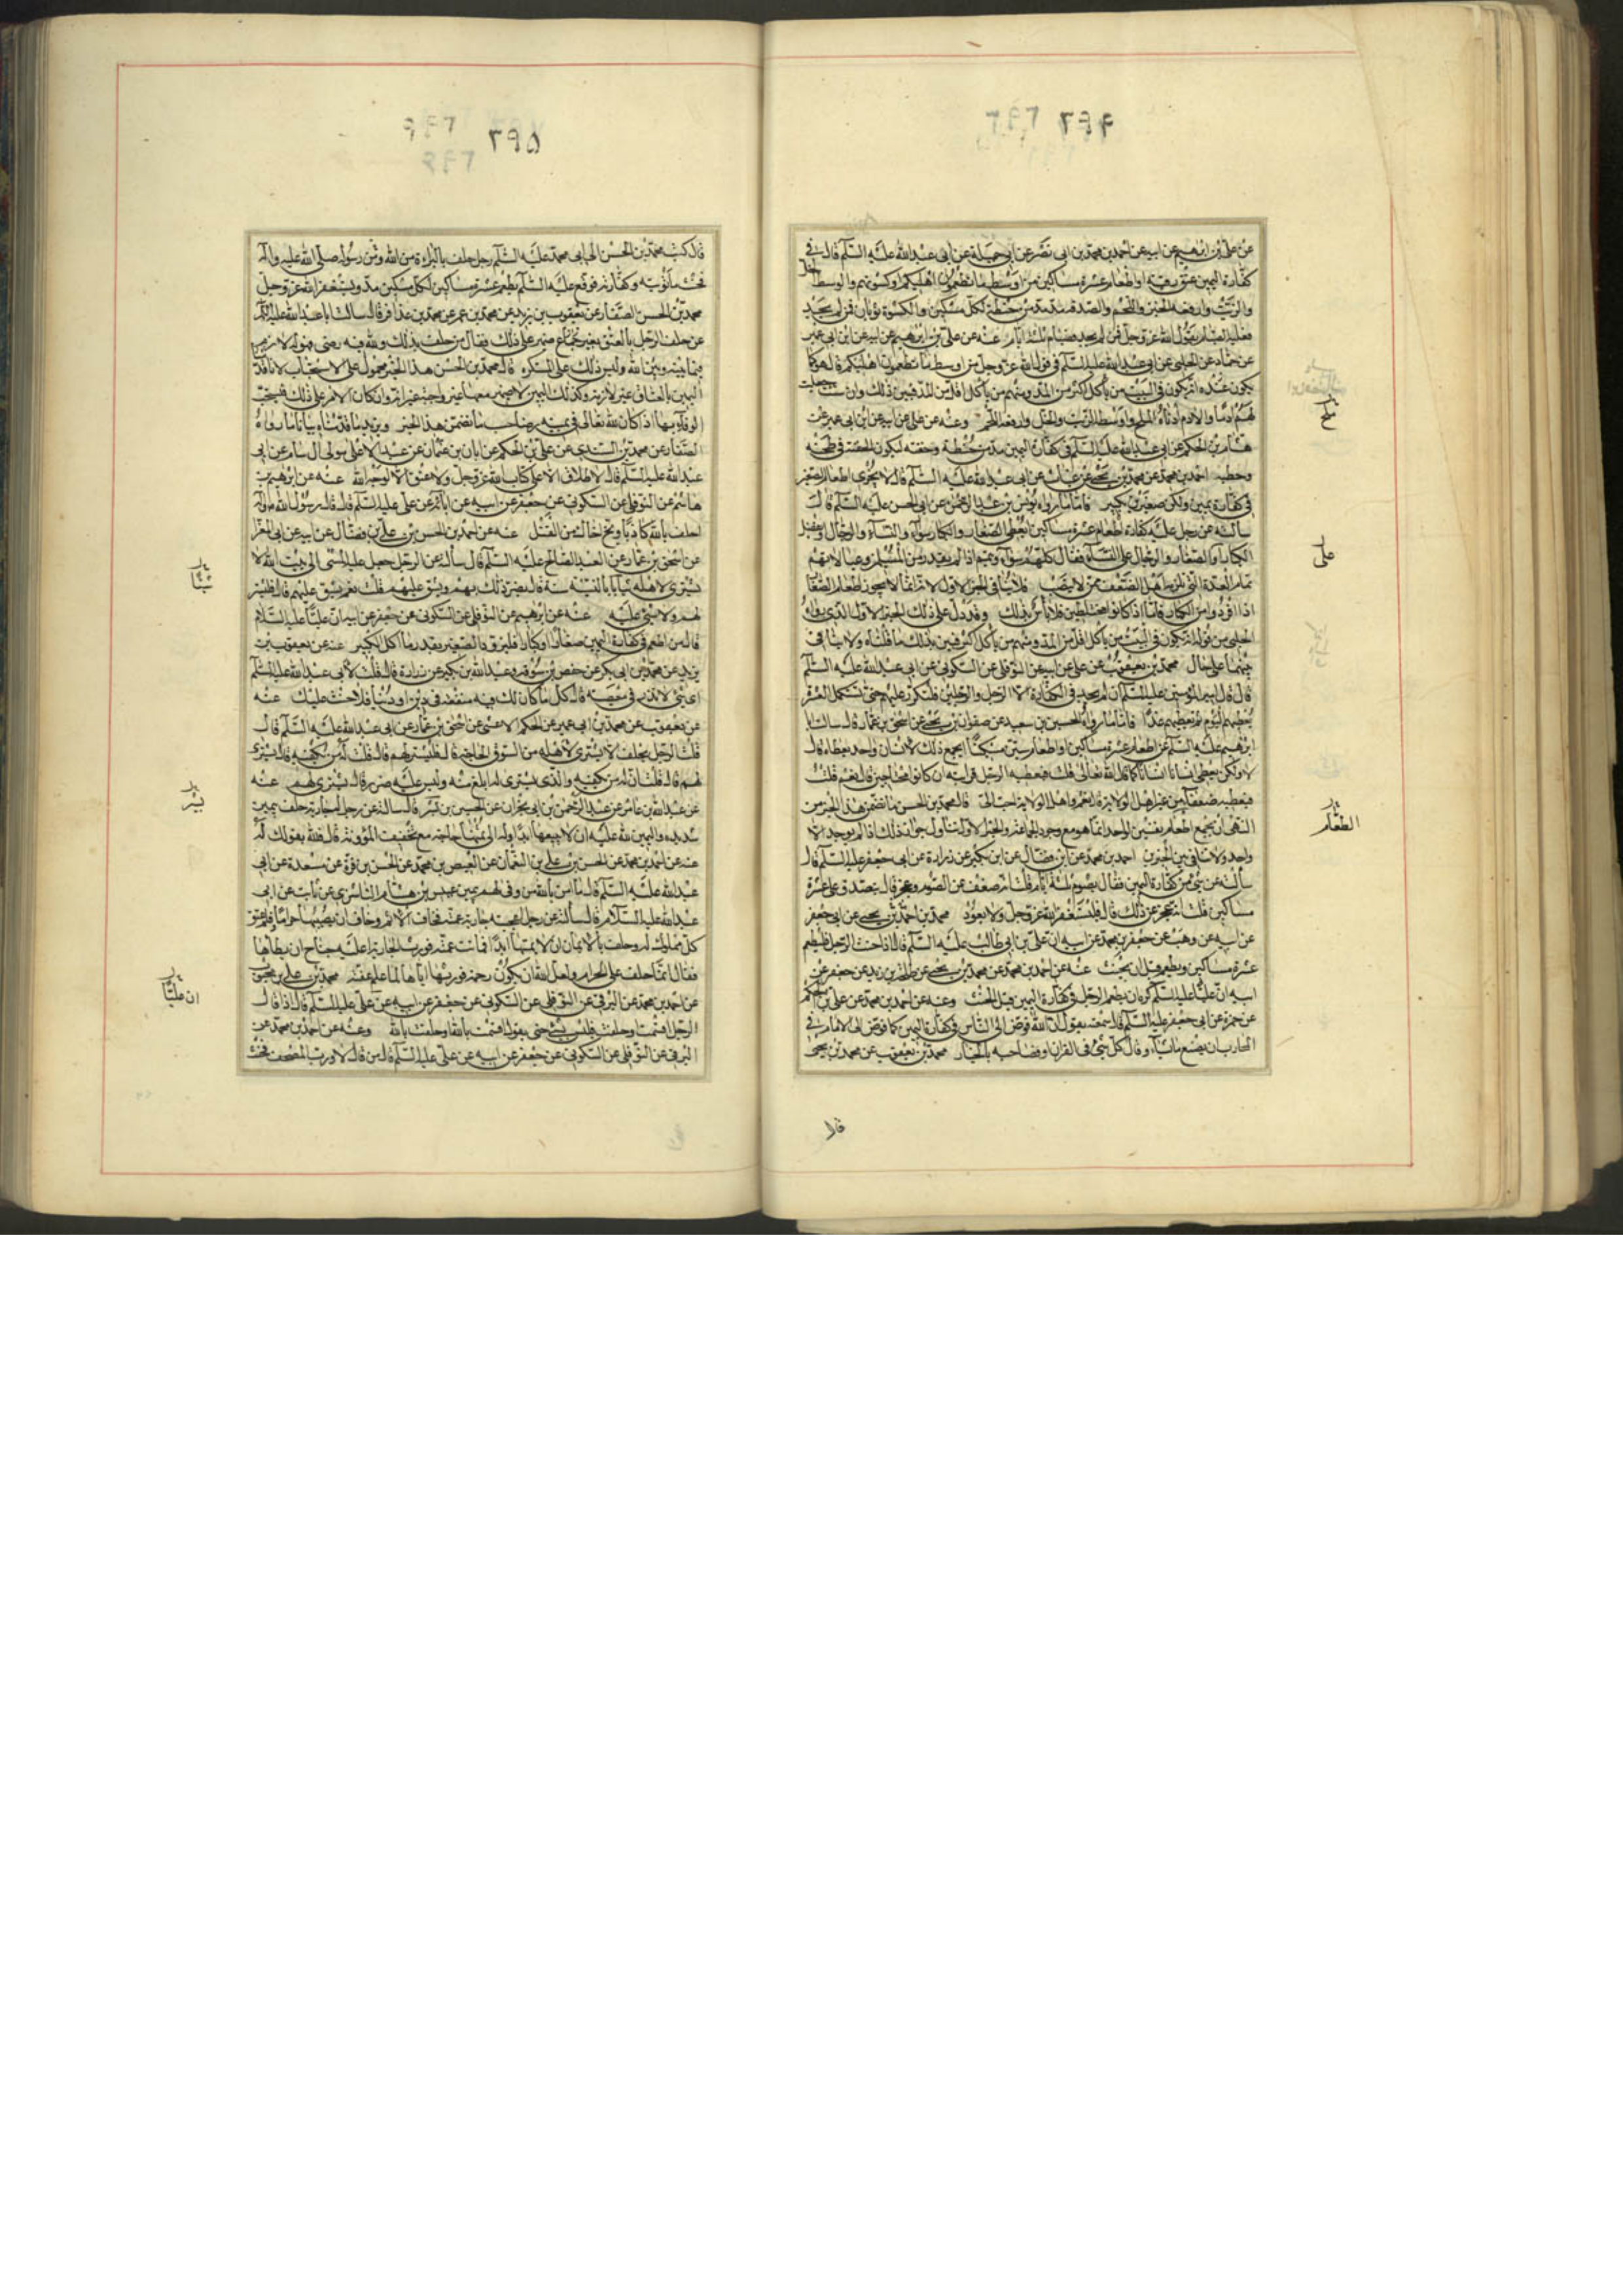 عن علي بن ابرهيم عن ابيه عن احمد بن محمد بن ابي نصر عن ابي جميلة عن ابي عبد الله عليه السلم قال في
كفارة اليمين عتق رقبة او اطعام عشرة مساكين من اوسط ما تطعمون اهليكم او كسوتهم والوسط الخل
والزيت وارفعه الخبز واللحم والصدقة مد مد من حنطة لكل مسكين والكسوة ثوبان فمن لم يجد
فعليه الصيام يقول الله عز وجل فمن لم يجد فصيام ثلثة ايام عنه عن علي بن ابرهيم عن ابيه عن ابن ابي عمير
عن حماد عن الحلبي عن ابي عبد الله عليه السلم في قول الله عز وجل من اوسط ما تطعمون اهليكم قال هو كما
يكون انه يكون في البيت من ياكل اكثر من المد ومنهم من ياكل اقل من المد فبين ذلك وان شئت جعلت
لهم ادما والادم ادناه الملح واوسطه الزيت والخل وارفعه اللحم وعنه عن علي عن ابيه عن ابن ابي عمير عن
هشام بن الحكم عن ابي عبد الله عليه السلم في كفارة اليمين مد من حنطة وحفنة لتكون الحفنة في طحنه
وحطبه احمد بن محمد عن محمد بن يحيى عن غياث عن ابي عبد الله عليه السلم قال لا يجزى اطعام الصغير
في كفارة يمين ولكن صغيرين بكبير فاما ما رواه يونس بن عبد الرحمن عن ابي الحسن عليه السلم قال
سالته عن رجل عليه كفارة اطعام عشرة مساكين ايعطى الصغار والكبار سواء والنساء والرجال او يفضل
الكبار على الصغار والرجال على النساء فقال كلهم سواء ويتمم اذا لم يقدر من المسلمين وعيالاتهم
تمام العدة التي تلزمه اهل الضعف ممن لا ينصب فلا ينافى الخبر الاول لانه انما لا يجوز اطعام الصغار
اذا افردوا من الكبار فاما اذا كانوا مختلطين فلا باس بذلك وقد دل على ذلك الخبر الاول الذي رواه
الحلبي من قوله انه يكون في البيت من ياكل اقل من المد ومنهم من ياكل اكثر فبين بذلك ما قلناه ولا تنافى
بينهما على حال محمد بن يعقوب عن علي عن ابيه عن النوفلي عن السكوني عن ابي عبد الله عليه السلم
قال قال امير المؤمنين عليه السلم ان لم يجد في الكفارة الا الرجل والرجلين فليكرر عليهم حتى يستكمل العشرة
يعطيهم اليوم ثم يعطيهم غدا فاما ما رواه الحسين بن سعيد عن صفوان بن يحيى عن اسحق بن عمار قال سالت ابا
ابرهيم عليه السلم عن اطعام عشرة مساكين او اطعام ستين مسكينا ايجمع ذلك لانسان واحد يعطاه قال
لا ولكن يعطى انسانا انسانا كما قال الله تعالى قلت فيعطيه الرجل قرابته ان كانوا محتاجين قال نعم قلت
فيعطيه ضعفاء من غير اهل الولاية قال نعم واهل الولاية احب الى قال محمد بن الحسن ما تضمن هذا الخبر من
النهى ان يجمع اطعام نفسين لواحد انما هو مع وجود الجماعة والخبر الاول تناول جواز ذلك اذا لم يوجد الا
واحد ولا تنافي بين الخبرين احمد بن محمد عن ابن فضال عن ابن بكير عن زرارة عن ابي جعفر عليه السلم قال
سالته عن شيء من كفارة اليمين فقال يصوم ثلثة ايام قلت انه ضعف عن الصوم وعجز قال يتصدق على عشرة
مساكين قلت انه عجز عن ذلك قال فليستغفر الله عز وجل ولا يعود محمد بن احمد بن يحيى عن ابي جعفر
عن ابيه عن وهب عن جعفر بن محمد عن ابيه ان علي بن ابي طالب عليه السلم قال اذا حنث الرجل فليطعم
عشرة مساكين ويطعم قبل ان يحنث عنه عن احمد بن محمد عن محمد بن يحيى عن طلحة بن زيد عن جعفر عن
ابيه ان عليا عليه السلم كره ان يطعم الرجل في كفارة اليمين قبل الحنث وعنه عن احمد بن محمد عن علي بن الحكم
عن حمزة عن ابي جعفر عليه السلم قال سمعته يقول ان الله فوض الى الناس في كفارة اليمين كما فوض الى الامام في
المحارب ان يصنع ما يشاء وقال كل شيء في القران او فصاحبه بالخيار محمد بن يعقوب عن محمد بن يحيى
قال
ملح
على
الطعام
٢٩٥
قال كتب محمد بن الحسن الى ابي محمد عليه السلم رجل حلف بالبراءة من الله ومن رسوله صلى الله عليه واله
فحنث ما توبته وكفارته فوقع عليه السلم يطعم عشرة مساكين لكل مسكين مد ويستغفر الله عز وجل
محمد بن الحسن الصفار عن يعقوب بن يزيد عن محمد بن عمر عن محمد بن عذافر قال سالت ابا عبد الله عليه السلم
عن حلف الرجل بالعتق بغير ضمير على ذلك فقال من حلف بذلك ولله فيه رضى فهو له لازم
فيما بينه وبين الله وليس ذلك على المستكره قال محمد بن الحسن هذا الخبر محمول على الاستحباب لانا قد
اليمين بالعتاق غير لازمة وكذلك اليمين لا ضمير معها غير واجبة غير انه وان كان الامر على ذلك فيستحب
الوفاء بها اذا كان لله تعالى في يمينه رضا حسب ما تضمن هذا الخبر ويزيد ما قدمناه بيانا ما رواه
الصفار عن محمد بن السندي عن علي بن الحكم عن ابان بن عثمان عن عبد الاعلى مولى ال سام عن ابي
عبد الله عليه السلم قال لا طلاق الا على كتاب الله عز وجل ولا عتق الا لوجه الله عنه عن ابرهيم بن
هاشم عن النوفلي عن السكوني عن جعفر عن ابيه عن ابائه عن علي عليه السلم قال قال رسول الله
احلف بالله كاذبا ونج اخاك من القتل عنه عن احمد بن الحسن بن علي بن فضال عن ابيه عن ابي المغرا
عن اسحق بن عمار عن العبد الصالح عليه السلم قال سالته عن الرجل جعل عليه المشي الى بيت الله لا
يشتري لاهله ثيابا بالنسية سنة قال يضر ذلك بهم ويشق عليهم قلت نعم يشق عليهم قال فليشتر
لهم ولا شيء عليه عنه عن ابرهيم عن النوفلي عن السكوني عن جعفر عن ابيه ان عليا عليه السلام
قال من اطعم في كفارة اليمين صغارا وكبارا فليزود الصغير بقدر ما اكل الكبير عنه عن يعقوب بن
يزيد عن محمد بن ابي بكر عن حفص بن سوقة وعبد الله بن بكير عن زرارة قال قلت لابي عبد الله عليه السلم
اي شيء لا نذر في معصية قال كل ما كان لك فيه منفعة في دين او دنيا فلا حنث عليك عنه
عن يعقوب عن محمد بن ابي عمير عن الحكم الاعمى عن اسحق بن عمار عن ابي عبد الله عليه السلم قال
قلت الرجل يحلف لا يشتري لاهله من السوق الحاجة قال فليشتر لهم قال قلت له من يكفيه قال يشتري
لهم قال قلت ان له من يكفيه والذي يشتري له ابلغ منه وليس عليه ضرر قال يشترى لهم عنه
عن عبد الله بن عامر عن عبد الرحمن بن ابي نجران عن الحسين بن بشر قال سالته عن رجل له جارية حلف بيمين
شديدة واليمين لله عليه ان لا يبيعها ابدا وله الى ثمنها حاجة مع تخفيف المؤونة قال فلله بقولك له
عنه عن احمد بن محمد عن الحسن بن علي بن النعمان عن العيص بن محمد عن الحسن بن قرة عن مسعدة عن ابي
عبد الله عليه السلم قال ما امن بالله من وفى لهم بيمين عبيس بن هشام الناشري عن ثابت عن ابي
عبد الله عليه السلام قال سالته عن رجل اعجبته جارية عمته فخاف الاثم وخاف ان يصيبها حراما فاعتق
كل مملوك له وحلف بالايمان ان لا يمسها ابدا فماتت عمته فورث الجارية اعليه جناح ان يطاها
فقال انما حلف على الحرام ولعل الله ان يكون رحمه فورثه اياها لما علم عفته محمد بن علي بن محبوب
عن احمد بن محمد عن البرقي عن النوفلي عن السكوني عن جعفر عن ابيه عن علي عليه السلم قال اذا قال
الرجل اقسمت او حلفت فليس بشيء حتى يقول اقسمت بالله او حلفت بالله وعنه عن احمد بن محمد عن
البرقي عن النوفلي عن السكوني عن جعفر عن ابيه عن علي عليه السلم قال من قال لا ورب المصحف فحنث
ان عليا